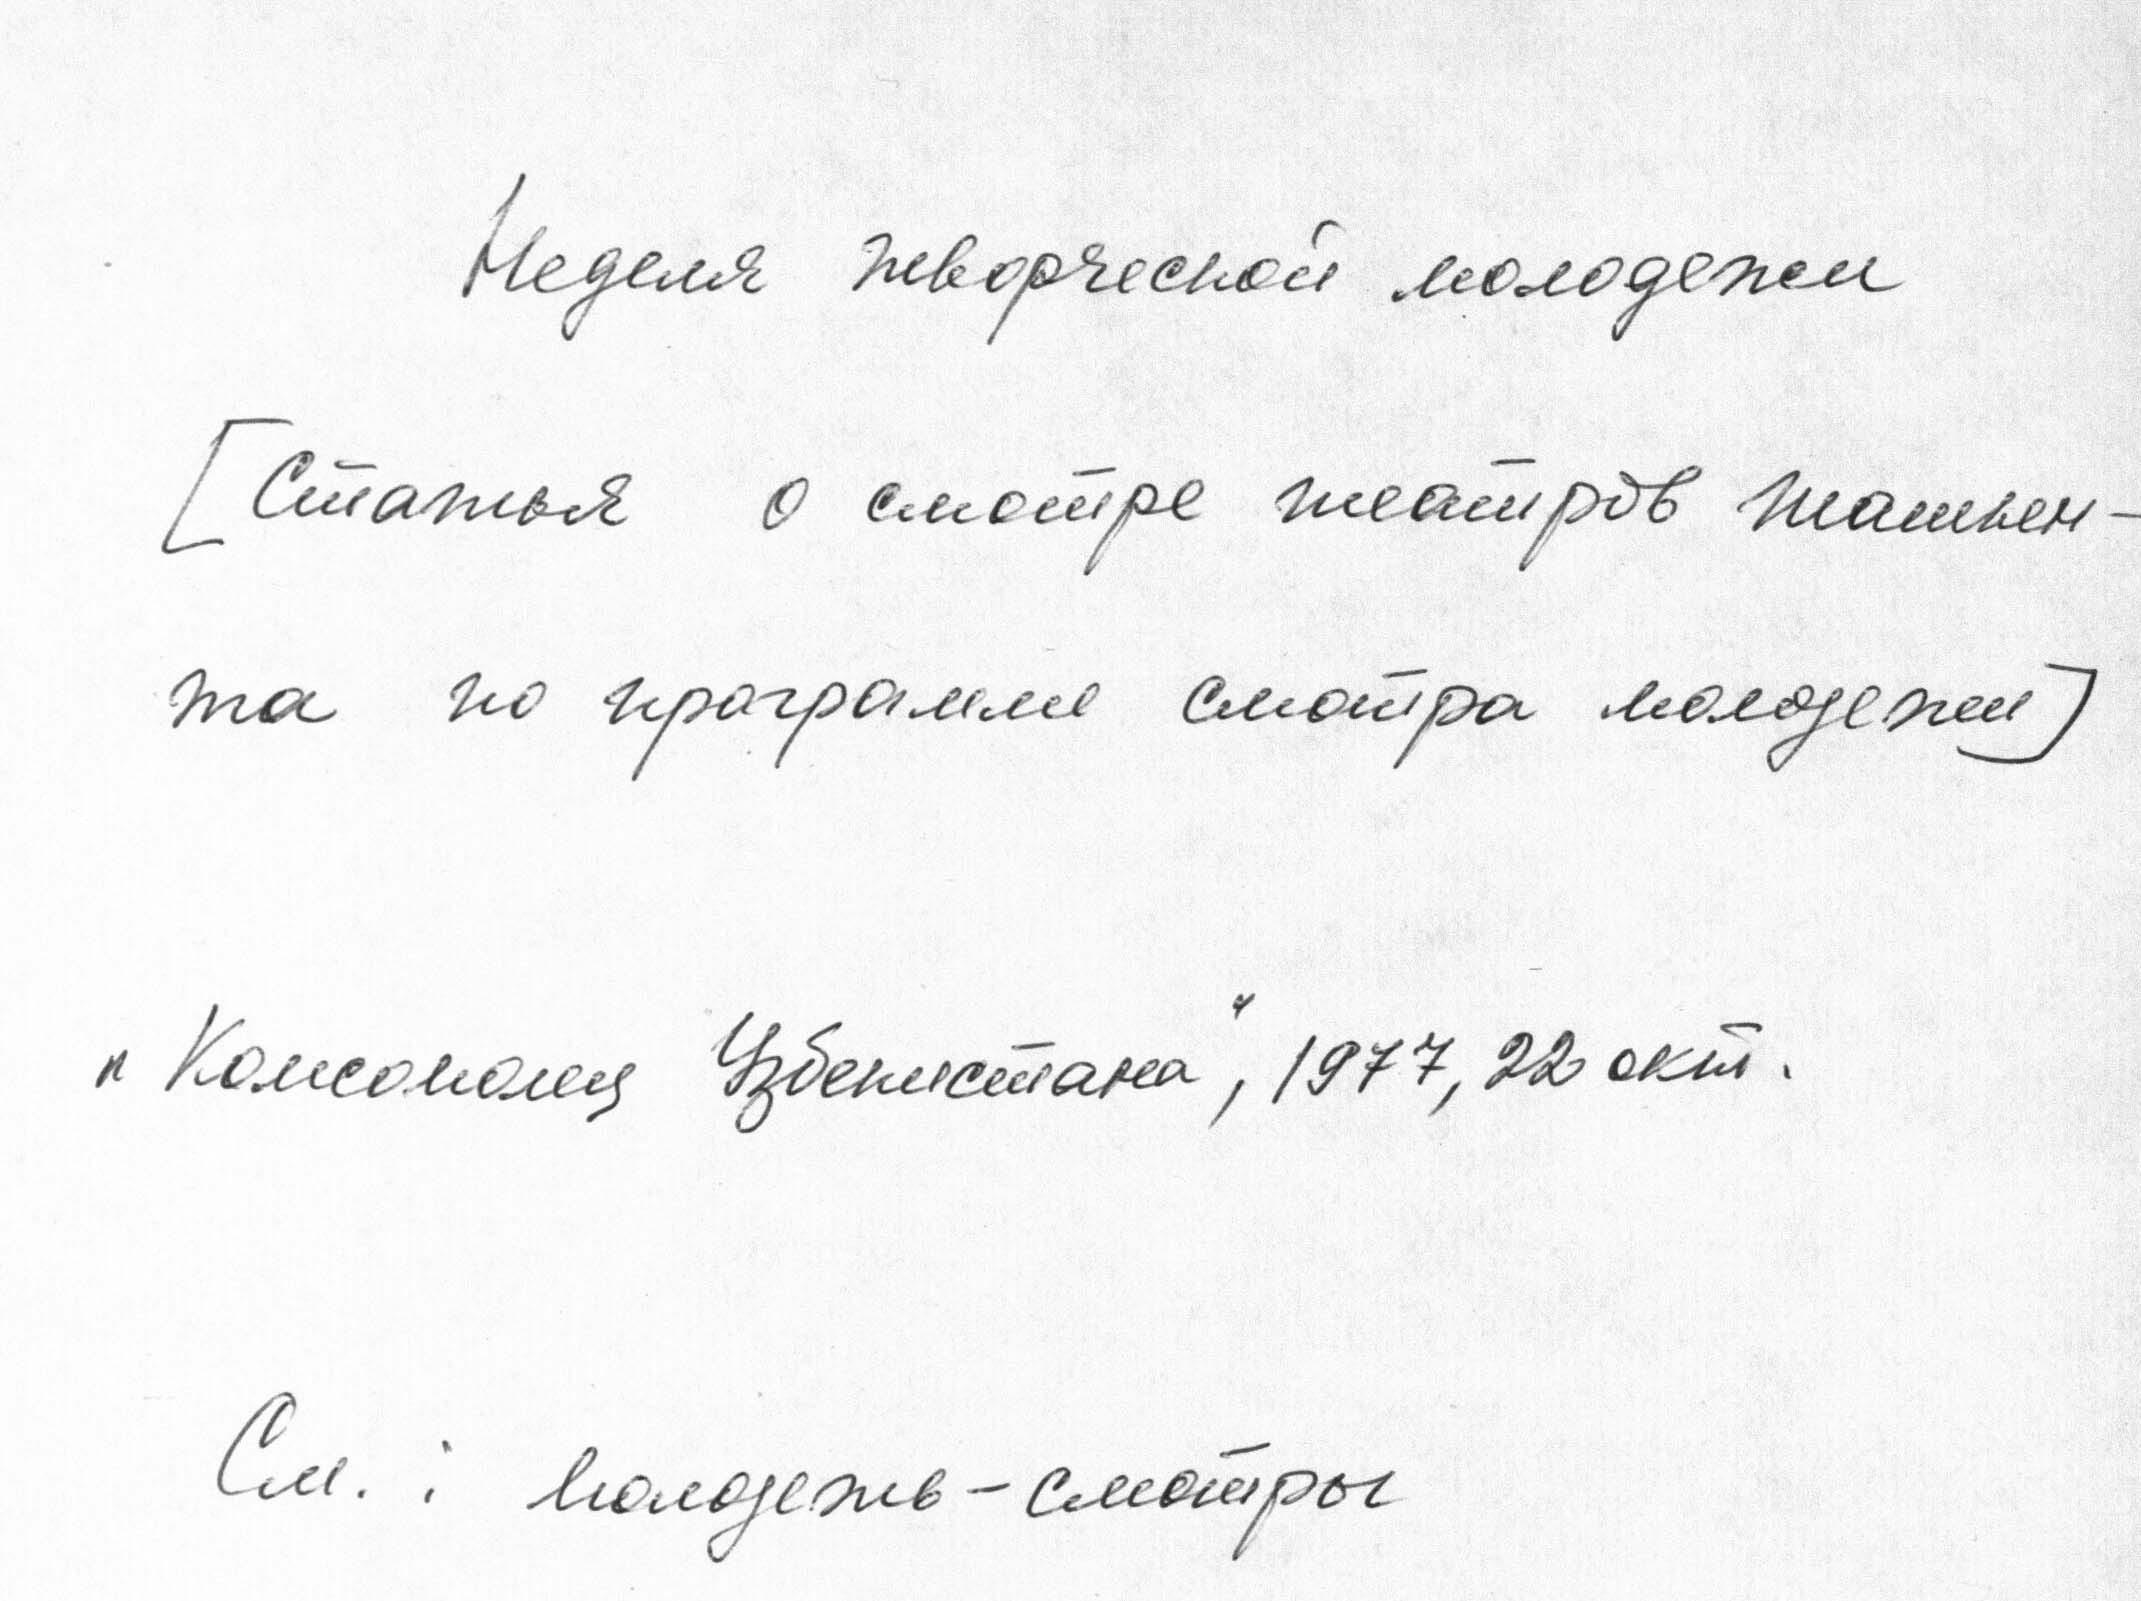 Неделя творческой молодежи
[Статья о смотре театров Ташкен-
та по программе смотра молодежи]
„Комсомолец Узбекистана“, 1977, 22 окт.
См.: молодежь-смотры